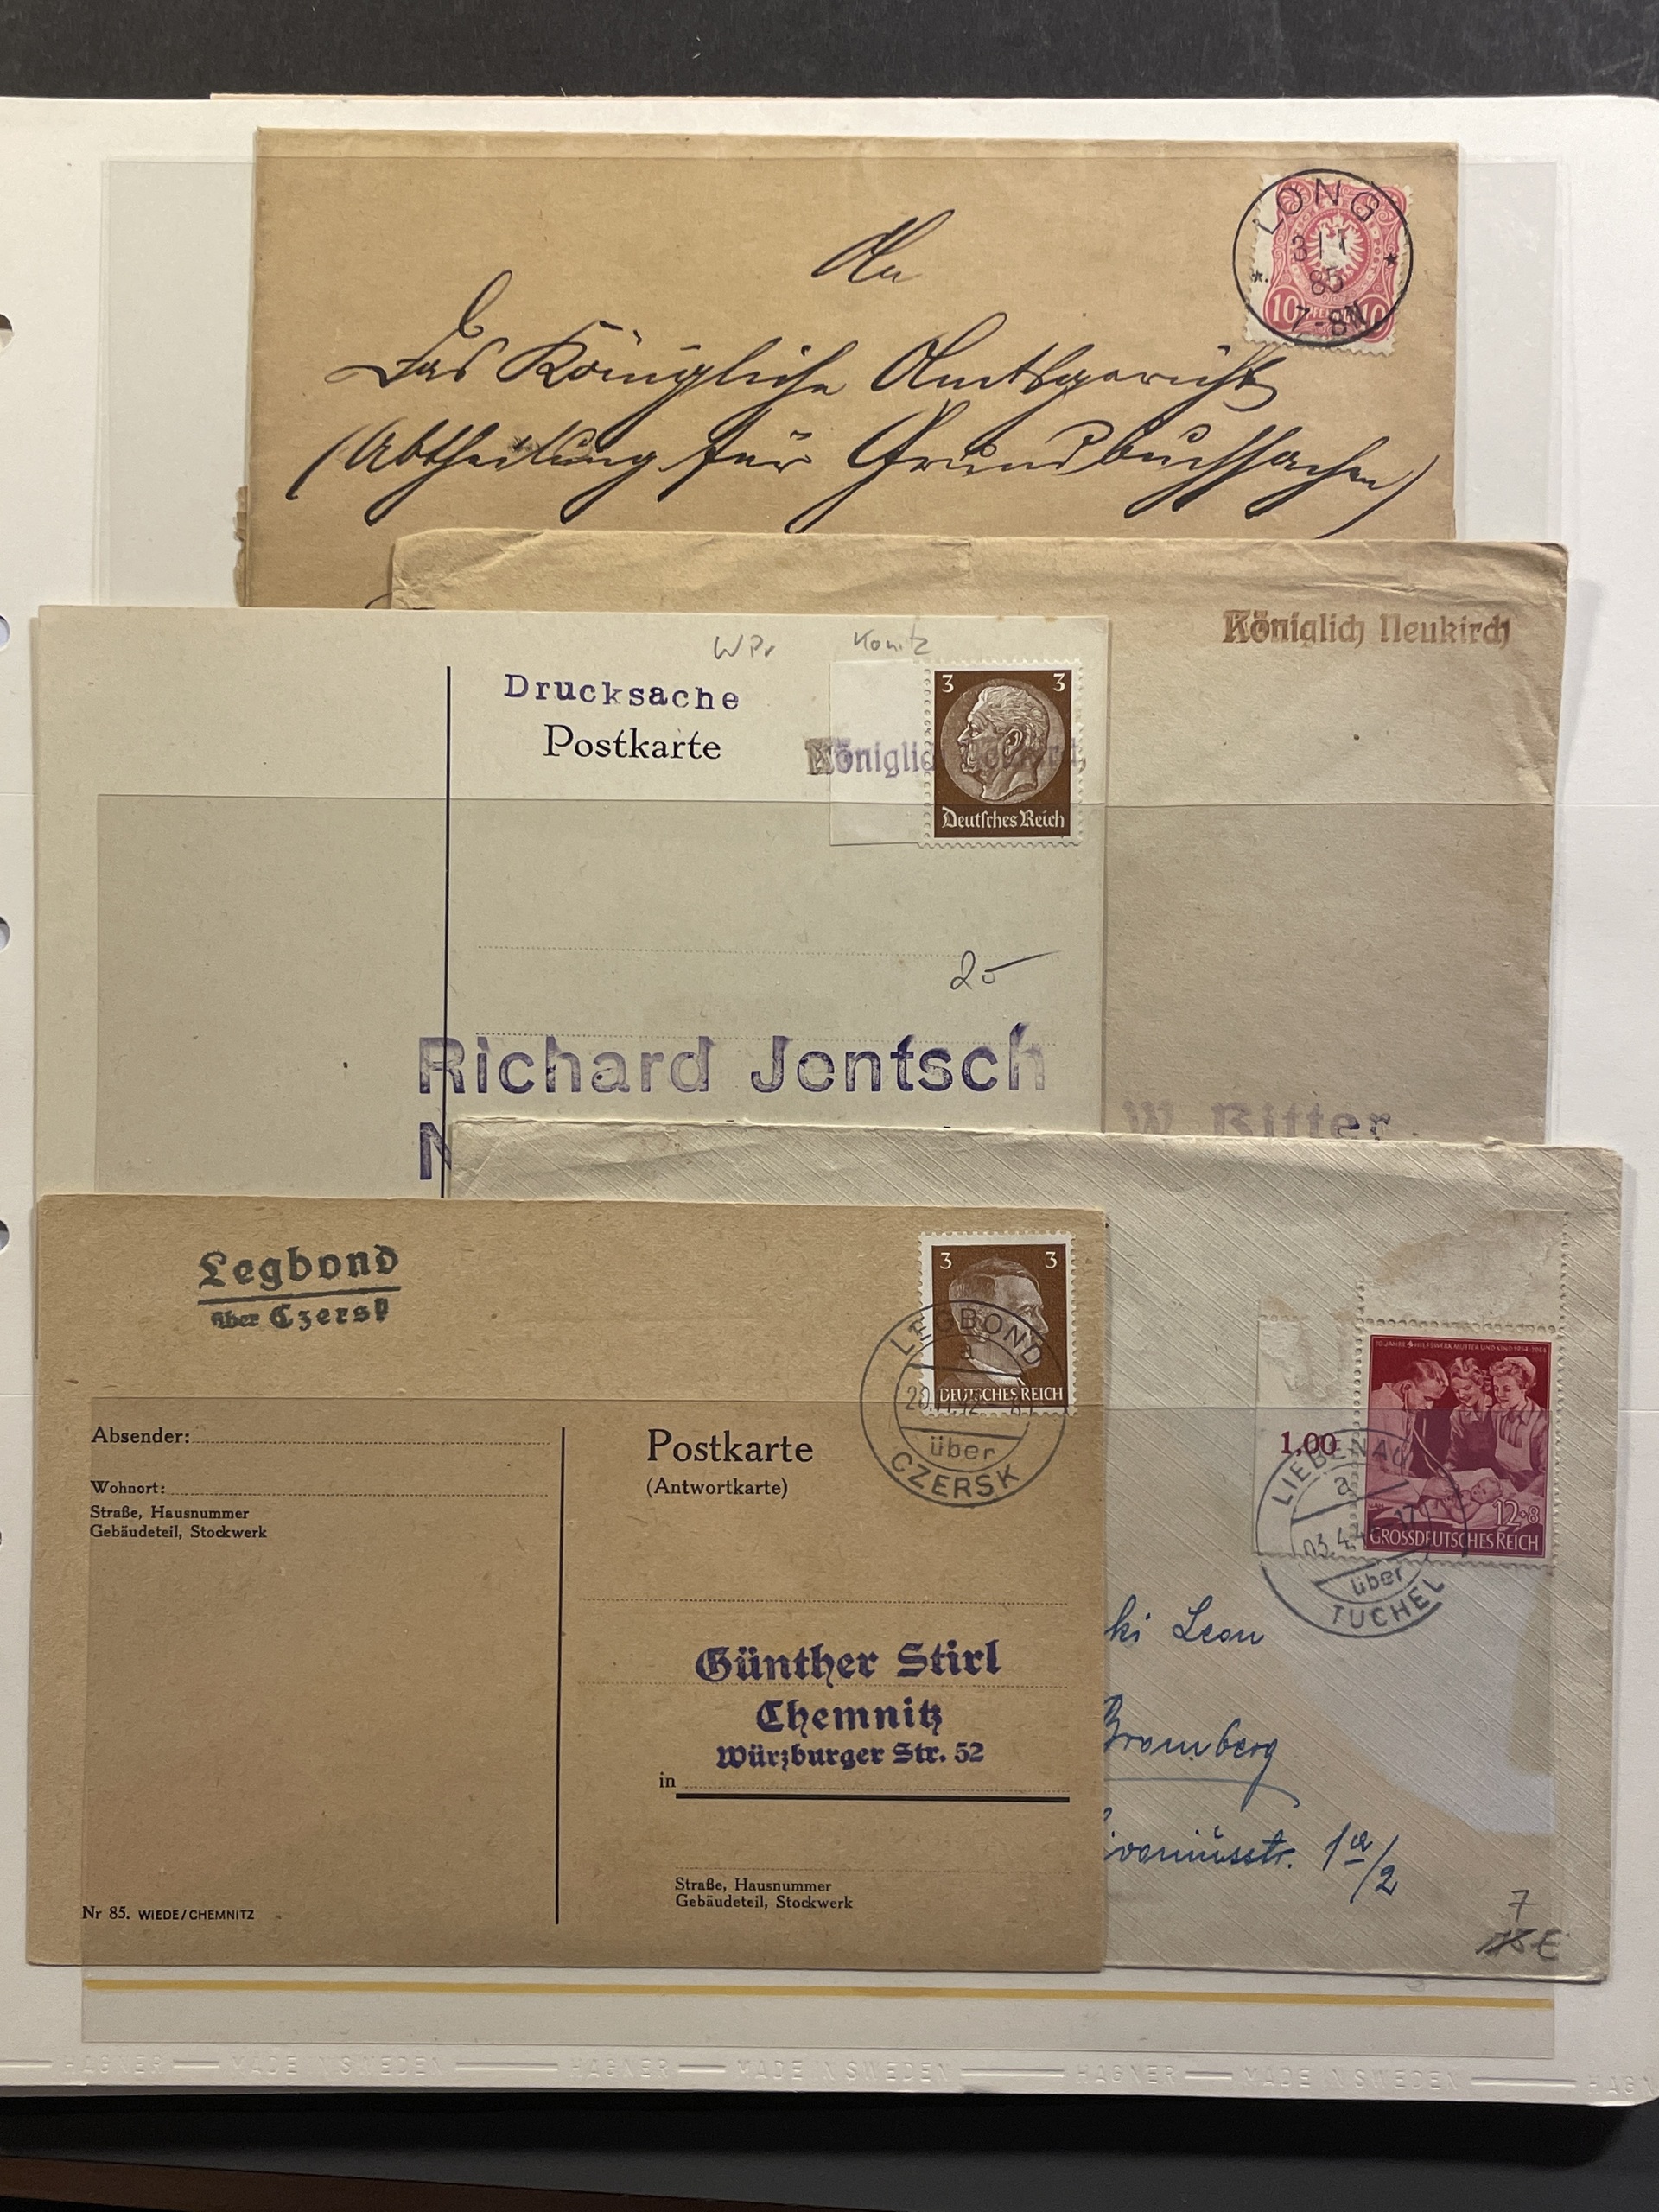 LONG
3 / 1
85
7-8N
10 PFENNIG 10
An
Das Königliche Amtsgericht
(Abtheilung für Grundbuchsachen)
Königlich Neukirch
WPr Konitz
Drucksache
Postkarte
Königlich Neukirch
3 3
Deutsches Reich
25
Richard Jentsch
N
W. Ritter
Legbond
über Czersk
3 3
DEUTSCHES REICH
LEGBOND
a
20.11.42
über
CZERSK
Absender:
Wohnort:
Straße, Hausnummer
Gebäudeteil, Stockwerk
Postkarte
(Antwortkarte)
Günther Stirl
Chemnitz
Würzburger Str. 52
in
Straße, Hausnummer
Gebäudeteil, Stockwerk
Nr 85. WIEDE/CHEMNITZ
10 JAHRE HILFSWERK MUTTER UND KIND 1934-1944
1,00
12+8
GROSSDEUTSCHES REICH
LIEBENAU
a
03.4.44 17
über
TUCHEL
ki Leon
Bromberg
1a/2
7
15 €
HAGNER MADE IN SWEDEN HAGNER MADE IN SWEDEN HAGNER MADE IN SWEDEN HAGN